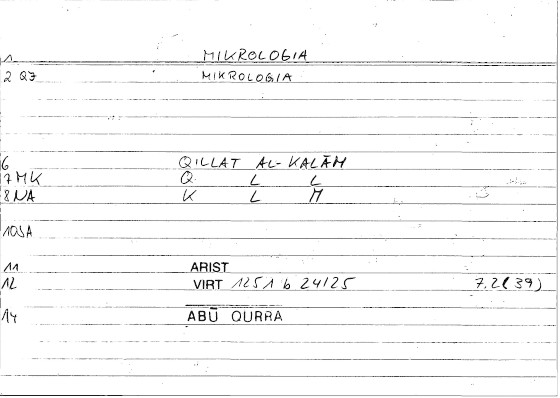 1 MIKROLOGIA
2 QJ MIKROLOGIA
6 QILLAT AL-KALĀM
7 MK Q L L
8 NA K L M
10 SA
11 ARIST
12 VIRT 1251 b 24/25 7.2(39)
14 ABŪ QURRA